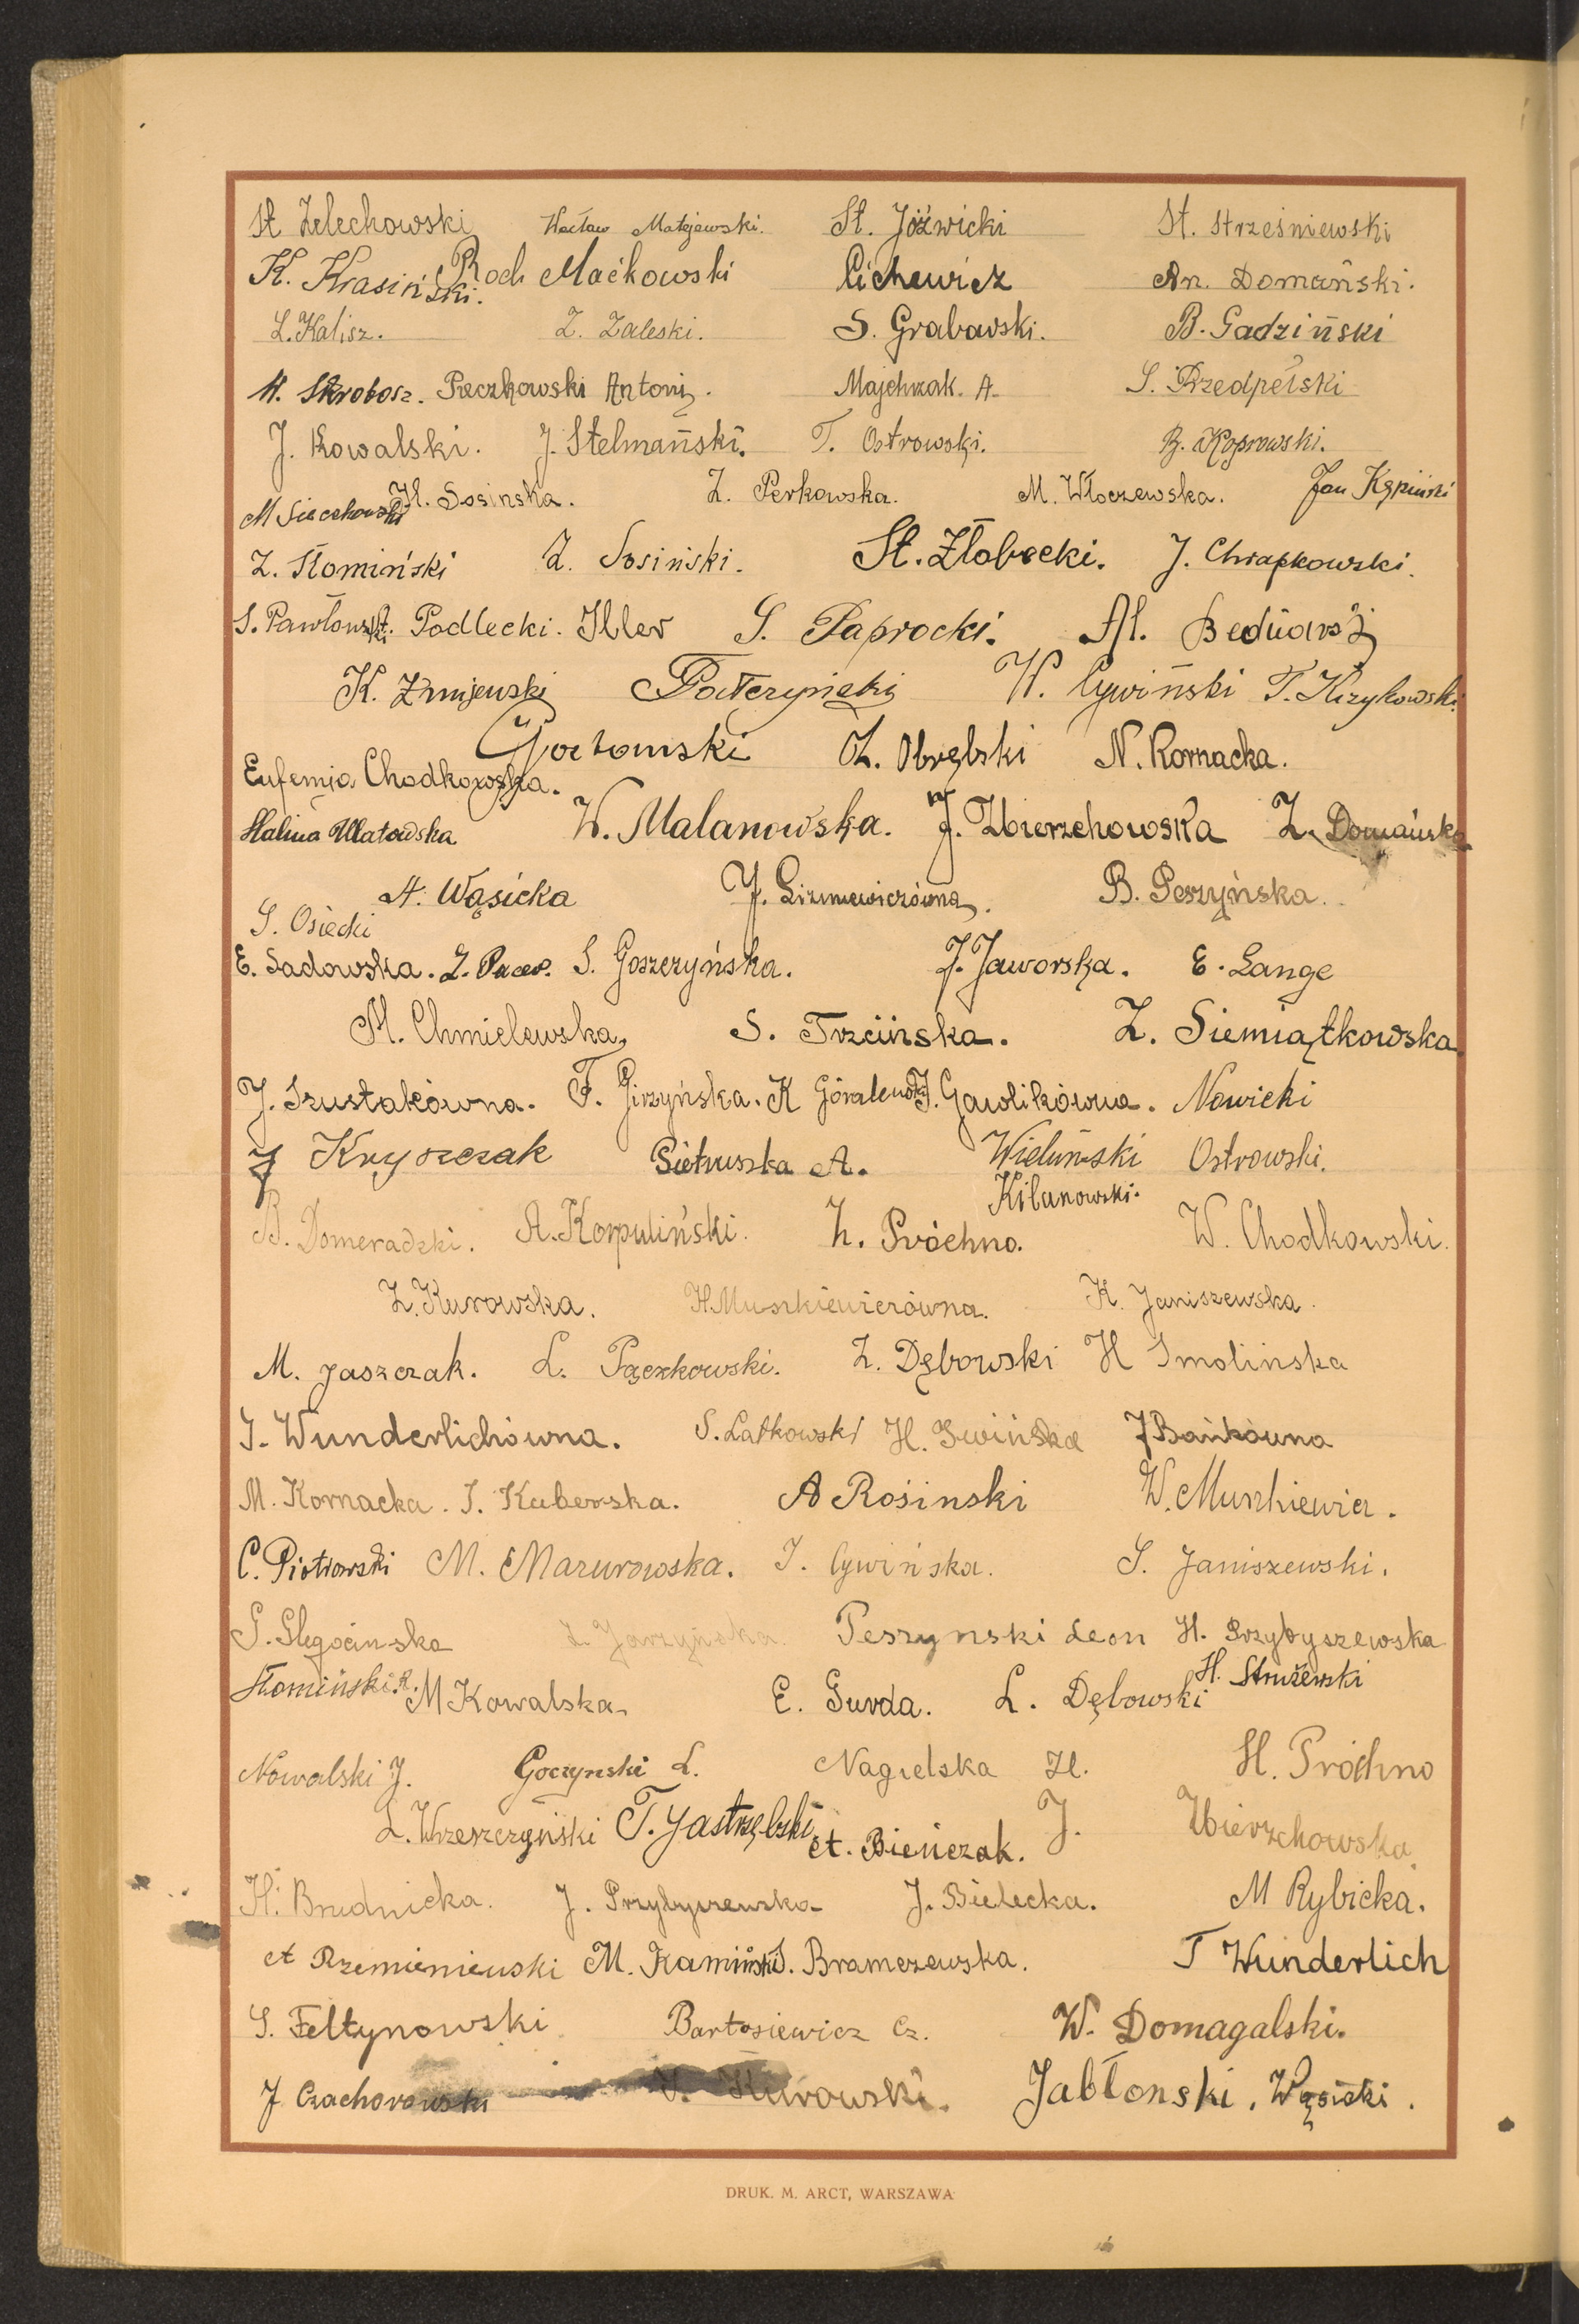 St Żelechowski Wacław Matejewski. St. Jóźwicki St. Strześniewski
K. Krasiński. Roch Maćkowski Cichewicz An. Domański.
L. Kalisz. Z. Zaleski. S. Grabowski. B. Gadziński
H. Skrobosz. Pieczkowski Antoni. Majchrzak. A. S. Przedpełski
J. Kowalski. J. Stelmański. T. Ostrowski. B. Koprowski.
M Sieczkowski H. Sosinska. Z. Perkowska. M. Włoczewska. Jan Kępiński
Z. Słomiński Z. Sosiński. St. Złobecki. J. Chrapkowski.
S. Pawłowski. Podlecki. Iller S. Paprocki. M. Bednarz
K. Żmijewski W. Cywiński T. Krzykowski.
Gortomski Z. Obrębski N. Kornacka.
Eufemia Chodkowska.
Halina Ulatowska W. Malanowska. J. Zbierzchowska Z. Domańska
A. Wąsicka B. Peszyńska.
S. Osiecki
E. Sadowska. Z. Pacer. S. Goszczyńska. J. Jaworska. E. Lange
M. Chmielewska, S. Trzcińska. Z. Siemiątkowska.
J. Szustakówna. F. Girzyńska. K J. Gawlikówna. Nowicki
J Kryszczak Pietruszka A. Wieliński Ostrowski.
Kilanowski.
B. Domeradzki. A. Korpuliński. Z. Próchno. W. Chodkowski.
Z. Kurowska. H. Muszkiewiczówna. K. Janiszewska.
M. Jaszczak. L. Pączkowski. Z. Dębowski H Smolińska
I. Wunderlichówna. S. Latkowski H. Świńska J Bańkówna
M. Kornacka. I. Kuberska. A Rosinski W. Muszkiewicz.
C. Piotrowski M. Mazurowska. I. Cywińska. S. Janiszewski.
G. Ślegocinska Z. Jarzyńska. Peszynski Leon H. Przybyszewska
Słomiński R. M Kowalska. E. Gurda. L. Dębowski H. Strużewski
Nowalski J. Goczynski L. Nagielska H. H. Próchno
L. Wrzeszczyński T. Jastrzębski A. Bieńczak. J. Zbierzchowska
H. Brudnicka. J. Przybyszewska J. Bielecka. M Rybicka.
A Rzemieniewski M. Kamiński S. Bramczewska. T Wunderlich
S. Feltynowski Bartosiewicz Cz. W. Domagalski.
J Czachorowski Kurowski. Jabłonski. Wąsicki.
DRUK. M. ARCT, WARSZAWA